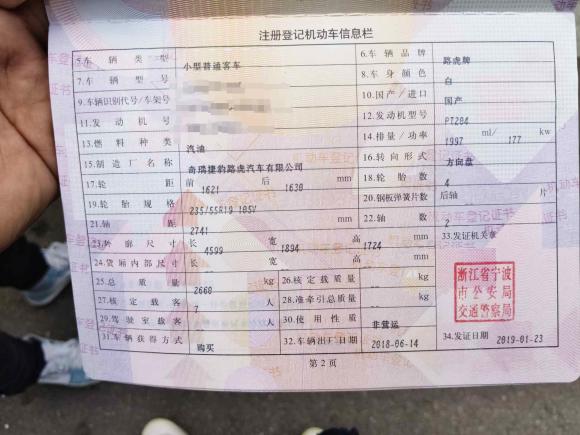 注册登记机动车信息栏
5.车辆类型 小型普通客车 6.车辆品牌 路虎牌
7.车辆型号 8.车身颜色 白
9.车辆识别代号/车架号 10.国产/进口 国产
11.发动机号 12.发动机型号 PT204
13.燃料种类 汽油 14.排量/功率 1997 ml/ 177 kw
15.制造厂名称 奇瑞捷豹路虎汽车有限公司 16.转向形式 方向盘
17.轮距 前 1621 后 1630 mm 18.轮胎数 4
19.轮胎规格 235/55R19 105V 20.钢板弹簧片数 后轴 -- 片
21.轴距 2741 mm 22.轴数 2
23.外廓尺寸 长 4599 宽 1894 高 1724 mm 33.发证机关章
24.货厢内部尺寸 长 -- 宽 -- 高 -- mm
25.总质量 2660 kg 26.核定载质量 -- kg
27.核定载客 7 人 28.准牵引总质量 -- kg
29.驾驶室载客 -- 人 30.使用性质 非营运
31.车辆获得方式 购买 32.车辆出厂日期 2018-06-14 34.发证日期 2019-01-23
浙江省宁波
市公安局
交通警察局
第2页